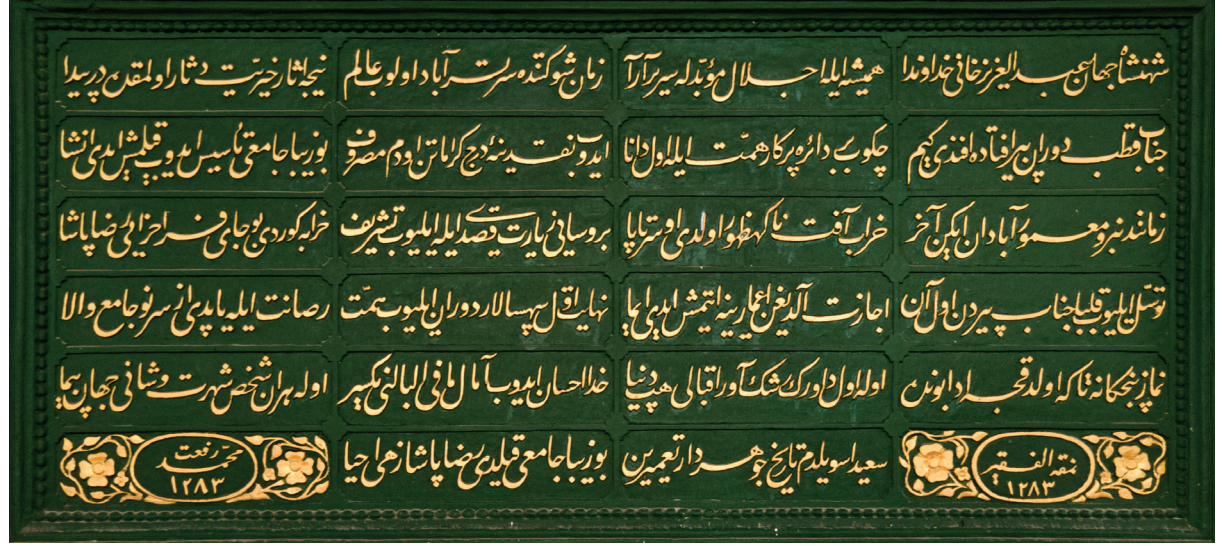 شهنشاه جهان عبد العزيز خانی خداوندا
هميشه ايله اجلال مؤبدله سرير آرا
زمان شوكتنده سر تسر آباد اولوب عالم
نيجه اثار خيريت دثار اولمقده در پيدا
جناب قطب دوران پير افتاده افندی كيم
چكوب بی دائره پركار همت ايله اول دانا
ايدوب نقدينۀ درج كراماتن اودم مصروف
بو زيبا جامعی تأسيس ايدوب قيلمش ايدی انشا
زمانندنبرو معمور و آبادان ايكن آخر
خراب آفت ناكهظهور اولدی او سر تا پا
بروسايی زيارت قصد ايله ايليوب تشريف
خرابه كوردی بو جای فرح زايی رضا پاشا
توسل ايليوب قلبا جناب پيردن اول آن
اجازت آلديغن اعمارينه ايتمش ايدی ايما
نهايت اول سپهسالار دوران ايليوب همت
رصانت ايله ياپدی از سر نو جامع والا
نماز پنجكانه تا كه اولدقجه ادا بونده
اوله اول داورك رشك آور اقبالی هپ دنيا
خدا احسان ايدوب آمال ما فی البالنی يكسر
اوله هر آن شخص شهرت و شانی جهان پيما
نمقه الفقير
١٢٨٣
سعيدا سويلدم تاريخ جوهردار تعميرين
بو زيبا جامعی قيلدی رضا پاشا زهی احيا
محمد رفعت
١٢٨٣